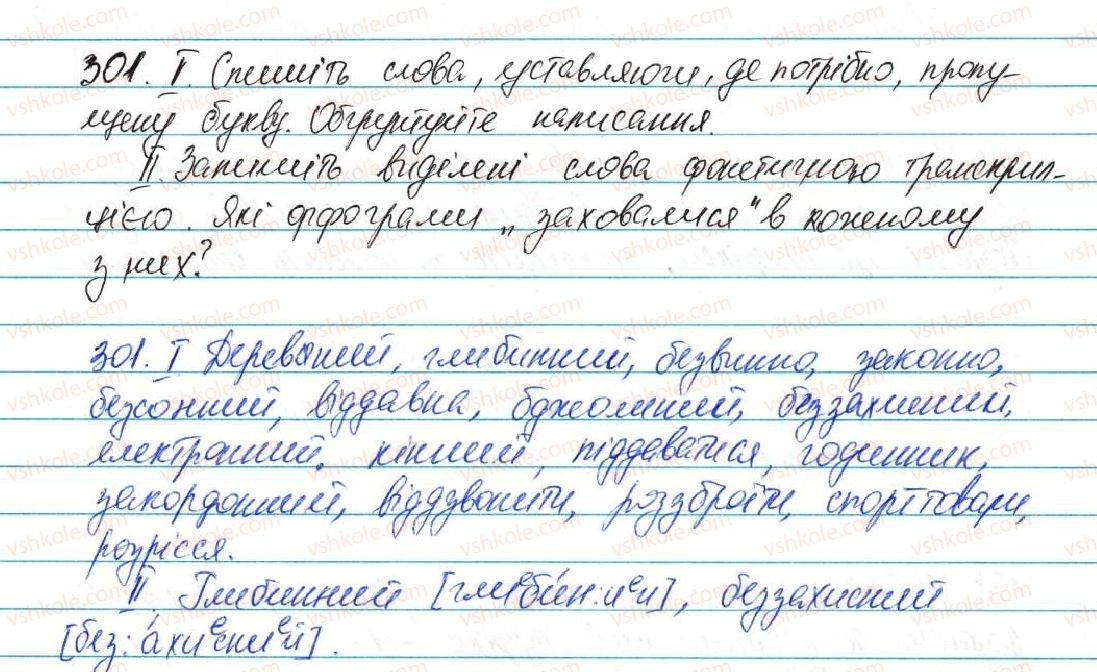 301. I. Спишіть слова, уставляючи, де потрібно, пропу-
щену букву. Обґрунтуйте написання.
II. Запишіть виділені слова фонетичною транскрип-
цією. Які орфограми „заховалися" в кожному
з них?
301. I Дерев'яний, глибинний, безвинно, законно,
безсонний, віддавна, бджолиний, беззахисний,
електронний, кінний, піддаватися, годинник,
закордонний, віддзвонити, роззброїти, спорттовари,
роздрісся.
II. Глибинний [глиᵉби́н:иᵉй], беззахисний
[без:а́хиᵉсниᵉй].